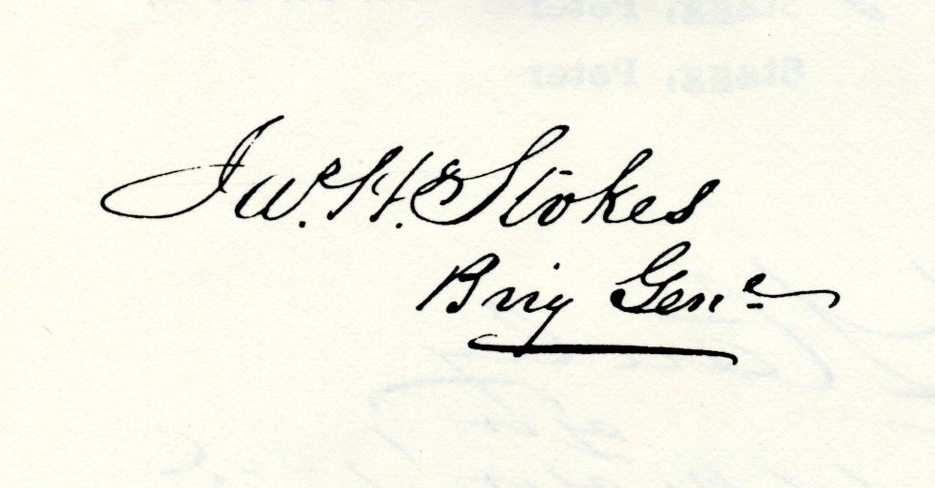 Jas. H. Stokes
Brig Genl